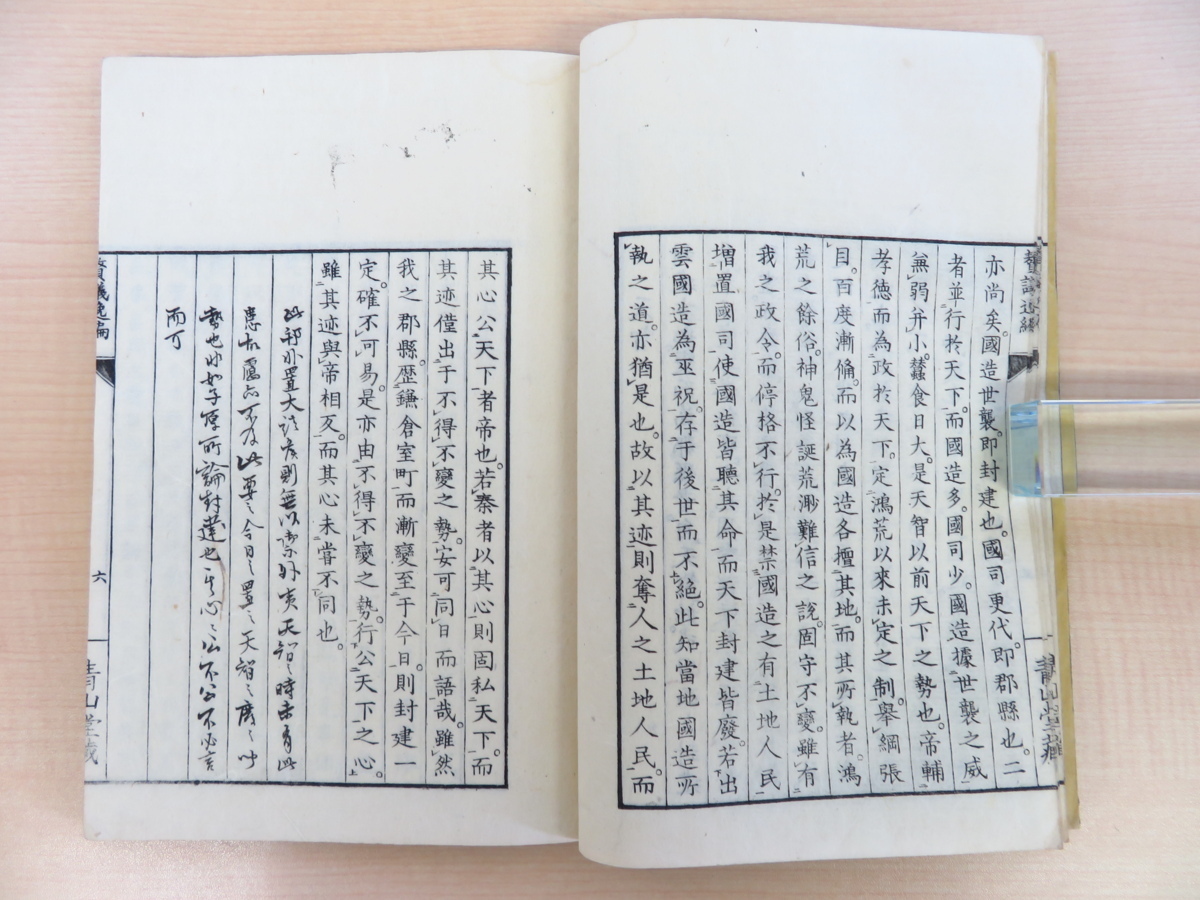 亦尚矣。國造世襲。即封建也。國司更代。即郡縣也。二
者並行於天下。而國造多。國司少。國造據世襲之威
兼弱并小。蠶食日大。是天智以前天下之勢也。帝輔
孝德而為政於天下。定鴻荒以來未定之制。舉綱張
目。百度漸脩。而以為國造各擅其地。而其所執者。鴻
荒之餘俗。神鬼怪誕荒渺難信之說。固守不變。雖有
我之政令。而停格不行。於是禁國造之有土地人民
増置國司使國造皆聽其命而天下封建皆廢。若出
雲國造為巫祝。存于後世而不絕。此知當地國造所
執之道。亦猶是也。故以其迹則奪人之土地人民。而
其心公天下者帝也。若秦者以其心則固私天下。而
其迹僅出于不得不變之勢。安可同日而語哉。雖然
我之郡縣。歷鎌倉室町而漸變至于今日。則封建一
定。確不可易。是亦由不得不變之勢。行公天下之心。
雖其迹與帝相反。而其心未嘗不同也。
勢也如子厚所論封建也其心之公不公不必言
而可
六
青山堂藏